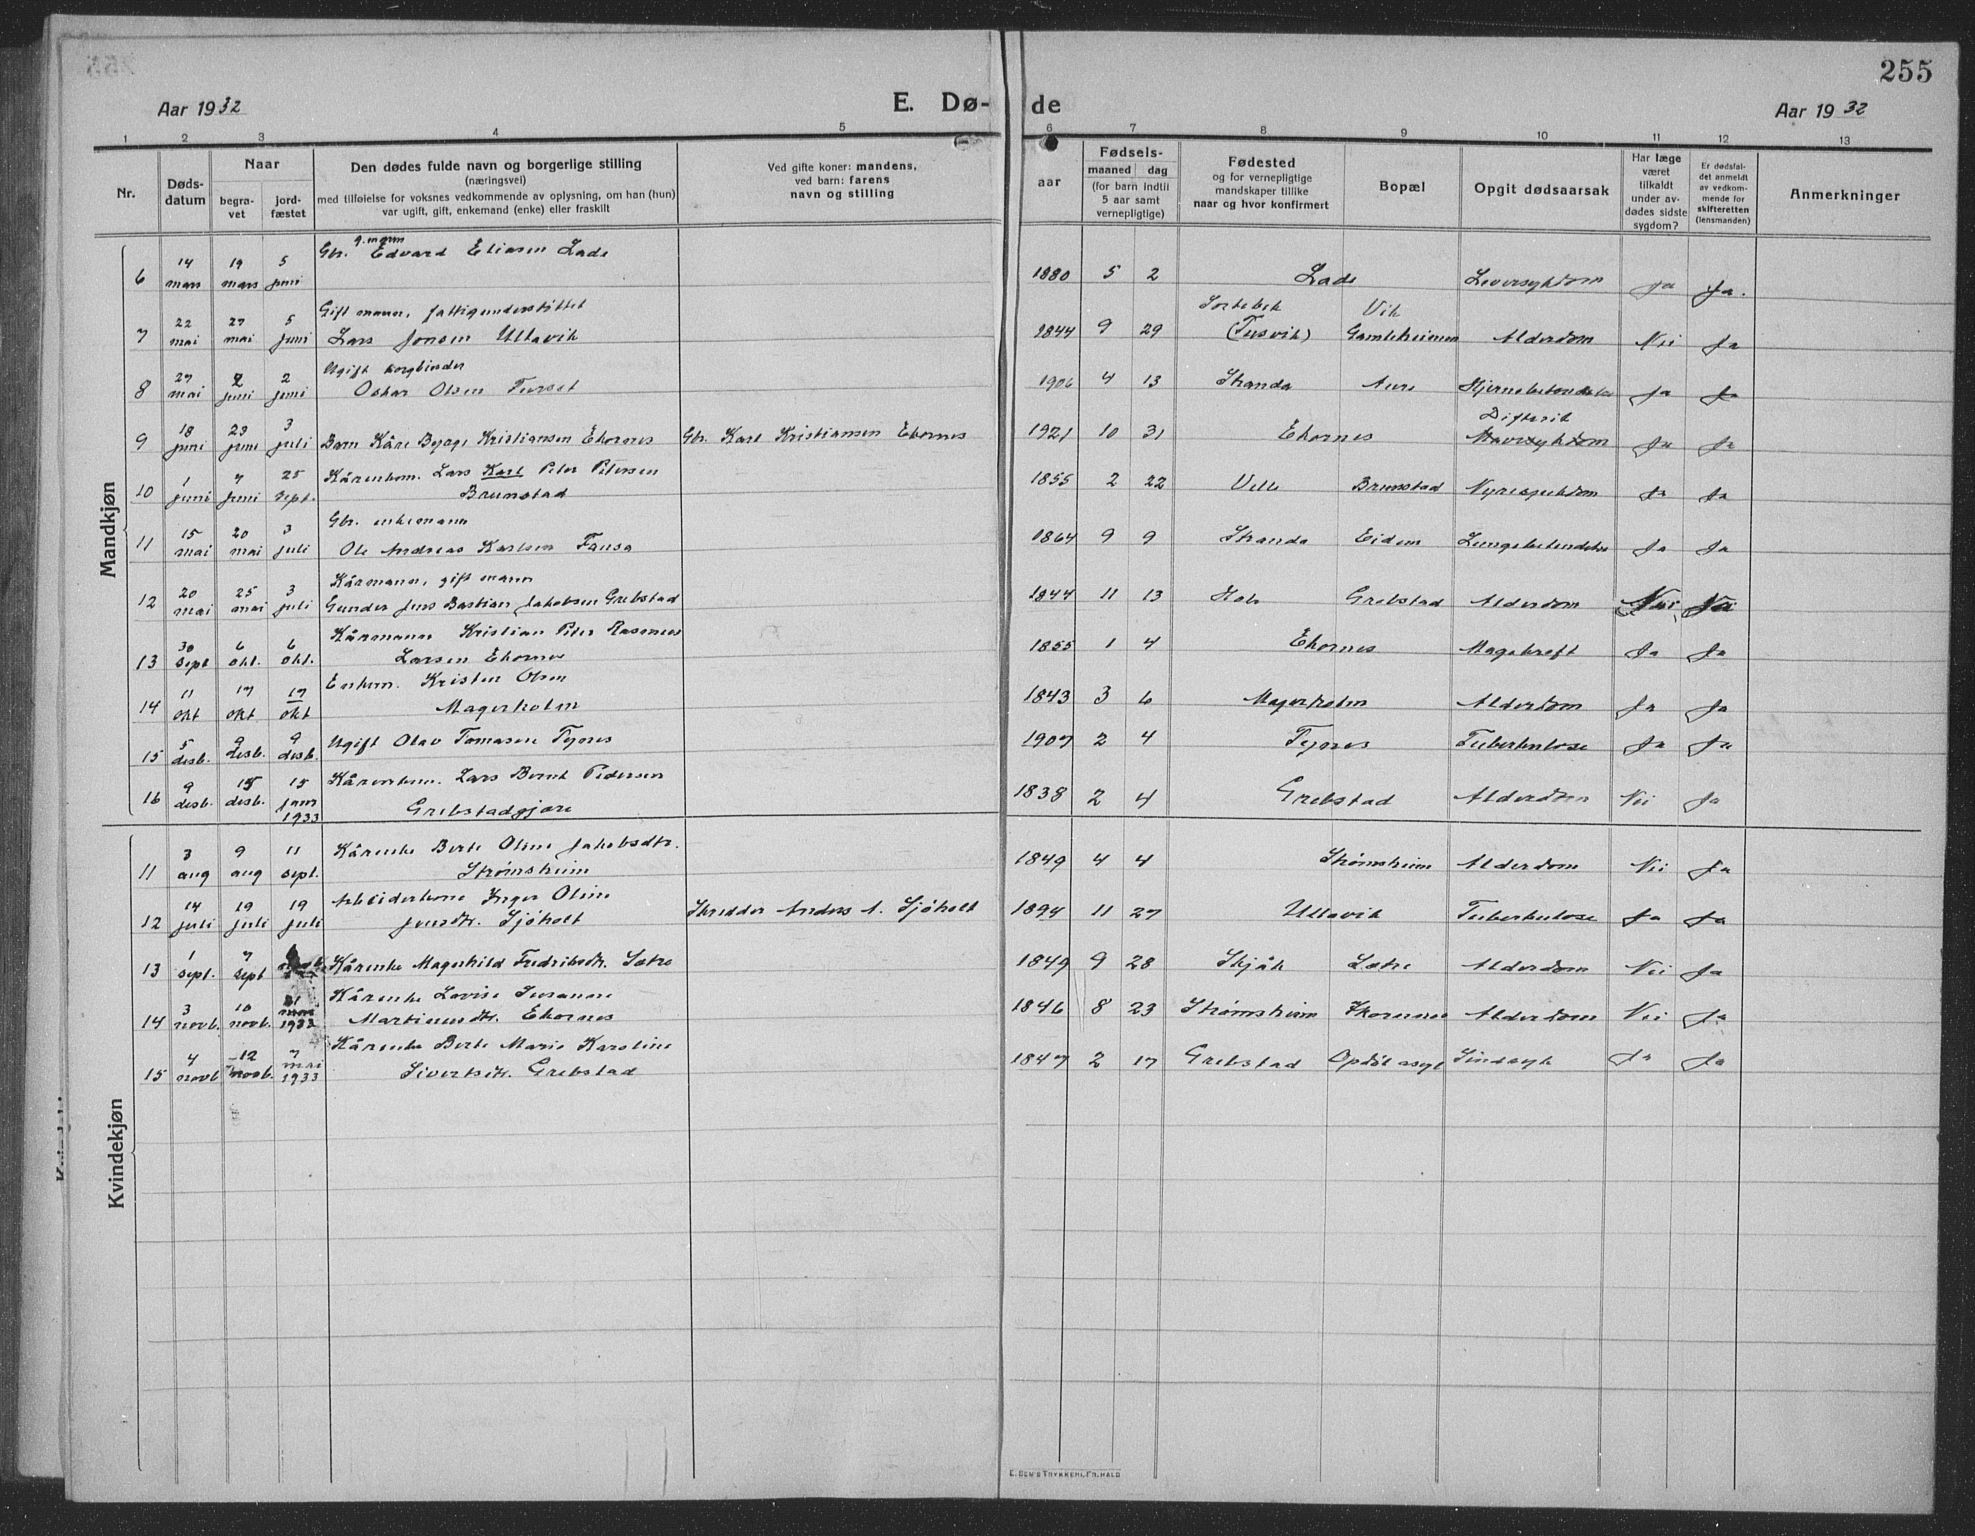 255
Aar 1932
E. Dø-
de
Aar 1932
1 2 3 4 5 6 7 8 9 10 11 12 13
Nr.
Døds-
datum
Naar
begra-
vet
jord-
fæstet
Den dødes fulde navn og borgerlige stilling
(næringsvei)
med tilføielse for voksnes vedkommende av oplysning, om han (hun)
var ugift, gift, enkemand (enke) eller fraskilt
Ved gifte koner: mandens,
ved barn: farens
navn og stilling
Fødsels-
aar
maaned dag
(for barn indtil
5 aar samt
vernepligtige)
Fødested
og for vernepligtige
mandskaper tillike
naar og hvor konfirmert
Bopæl
Opgit dødsaarsak
Har læge
været
tilkaldt
under av-
dødes sidste
sygdom?
Er dødsfal-
det anmeldt
av vedkom-
mende for
skifteretten
(lensmanden)
Anmerkninger
Mandkjøn
g. mann
6 14 mars 19 mars 5 juni Gbr. Edvard Eliasen Lade 1880 5 2 Lade Leversykdom Ja Ja.
Gift mann, fattigunderstøttet Sortebek Vik
7 22 mai 27 mai 5 juni Lars Jonsen Ullavik 1844 9 29 (Tusvik) Gamleheimen Alderdom Nei Ja
Ugift korgbinder
8 27 mai 2 juni 2 juni Oskar Olsen Tusset 1906 4 13 Stranda Aure Hjernebetendelse Ja Ja
Difterit
9 18 juni 23 juni 3 juli Barn Kåre Byrge Kristiansen Ekornes Gbr. Karl Kristiansen Ekornes 1921 10 31 Ekornes Ja Ja
Kårenkem. Lars Karl Peter Petersen
10 1 juni 7 juni 25 sept. Brunstad 1855 2 22 Velle Brunstad Nyresykdom Ja Ja
Gbr. enkemann
11 15 mai 20 mai 3 juli Ole Andreas Karlsen Fausa 1864 9 9 Stranda Eidem Lungebetendelse Ja Ja
Kårmann, gift mann
12 20 mai 25 mai 3 juli Gunder Jens Bastian Jakobsen Grebstad 1844 11 13 Hole Grebstad Alderdom Nei Nei
Kårmann Kristian Peter Rasmus
13 30 sept 6 okt. 6 okt. Larsen Ekornes 1855 1 4 Ekornes Magekreft Ja Ja
Enkem. Kristen Olsen
14 11 okt 17 okt 17 okt Magerholm 1843 3 6 Magerholm Alderdom Ja Ja
15 5 desb. 9 desb. 9 desb. Ugift Olav Tomasen Tynes 1907 2 4 Tynes Tuberkulose Ja Ja
Kårenkem. Lars Bernt Pedersen
16 9 desb. 15 desb. 15 jann 1933 Grebstadgjære 1838 2 4 Grebstad Alderdom Nei Ja
Kvindekjøn
Kårenke Berte Oline Jakobsdtr.
11 3 aug 9 aug 11 sept. Strømsheim 1849 4 4 Strømsheim Alderdom Nei Ja
Arbeiderkone Inger Oline
12 14 juli 19 juli 19 juli Jensdtr. Sjøholt Skredder Anders A. Sjøholt 1894 11 27 Ullavik Tuberkulose Ja Ja
13 1 sept. 7 sept Kårenke Magnhild Fredriksdtr. Sætre 1849 9 28 Skjåk Sætre Alderdom Nei Ja
Kårenke Lovise Susanne
14 3 novb. 10 novb. Martinusdtr. Ekornes 1846 8 23 Strømsheim Ekornnes Alderdom Nei Ja
Kårenke Berte Marie Karoline
15 4 novb 12 novb. 7 mai 1933 Sivertsdtr. Grebstad 1847 2 17 Grebstad Opdøl asyl Sindsyk Ja Ja